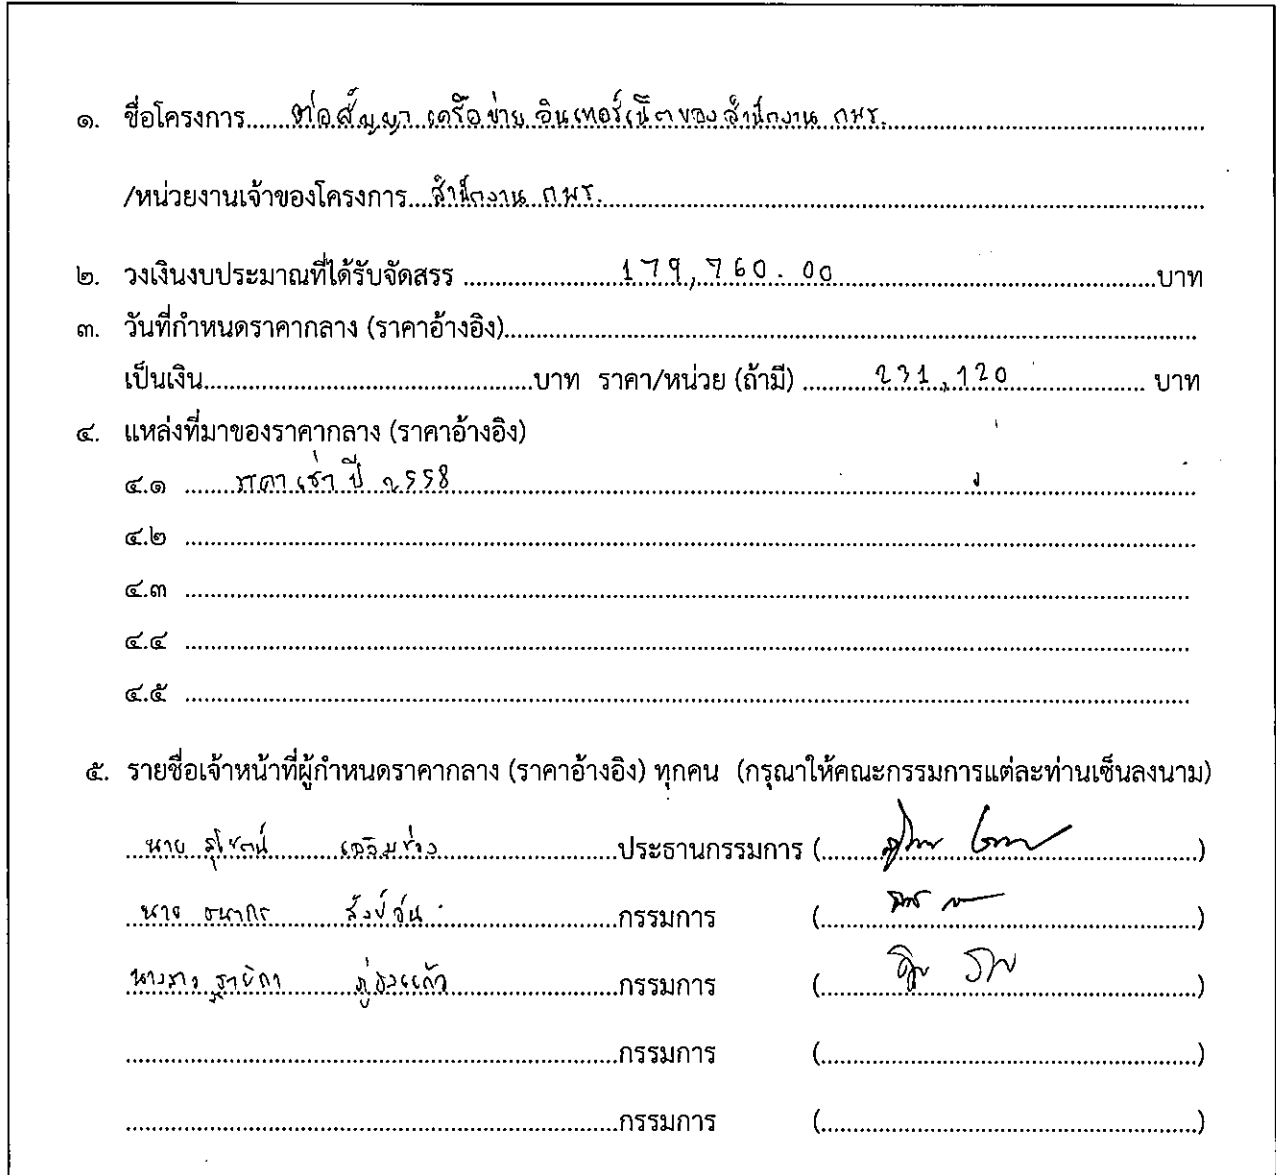 ๑. ชื่อโครงการ ต่อสัญญาเครือข่ายอินเทอร์เน็ตของสำนักงาน กพร.
/หน่วยงานเจ้าของโครงการ สำนักงาน กพร.
๒. วงเงินงบประมาณที่ได้รับจัดสรร 179,760.00 บาท
๓. วันที่กำหนดราคากลาง (ราคาอ้างอิง)
เป็นเงิน บาท ราคา/หน่วย (ถ้ามี) 231,120 บาท
๔. แหล่งที่มาของราคากลาง (ราคาอ้างอิง)
๔.๑ ราคาเช่า ปี ๒๕๕8
๔.๒
๔.๓
๔.๔
๔.๕
๕. รายชื่อเจ้าหน้าที่ผู้กำหนดราคากลาง (ราคาอ้างอิง) ทุกคน (กรุณาให้คณะกรรมการแต่ละท่านเซ็นลงนาม)
นาย สุโชตน์ เฉลิมช่วง ประธานกรรมการ ( )
นาย ธนากร กรรมการ ( )
นางสาว ฐายิกา กรรมการ ( )
กรรมการ ( )
กรรมการ ( )